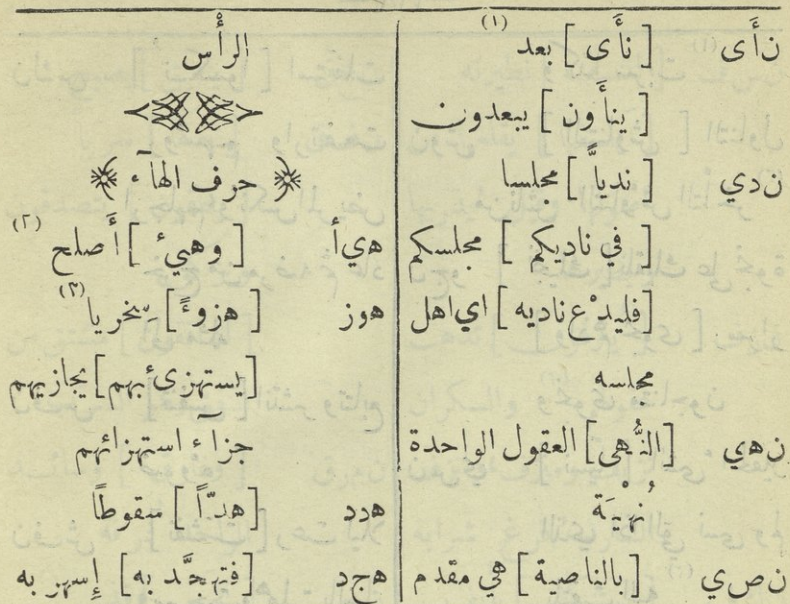 ن أ ى [ نأى ] بعد (١)
[ ينأون ] يبعدون
ن د ي [ ندياً ] مجلسا
[ في ناديكم ] مجلسكم
[ فليدْع ناديه ] اي اهل
مجلسه
ن ه ي [ النُّهى ] العقول الواحدة
نُهْيَة
ن ص ي [ بالناصية ] هي مقدم
الرأس
حرف الهآء
ه ي أ [ وهيء ] أصلح (٢)
ه و ز [ هزوءً ] سِخريا (٣)
[ يستهزىء بهم ] يجازيهم
جزآء استهزائهم
ه د د [ هدّاً ] سقوطاً
ه ج د [ فتهجَّد به ] إسهر به